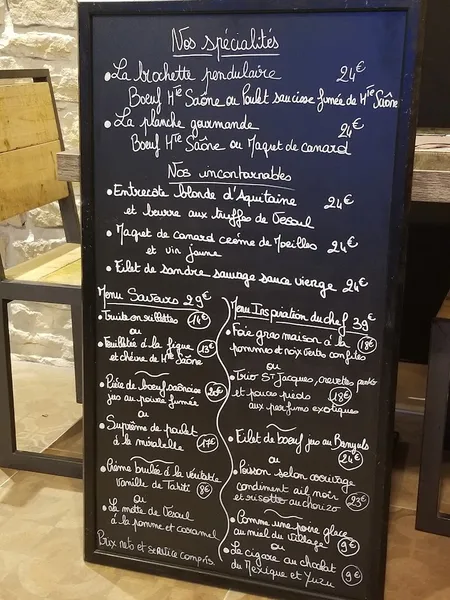 Nos spécialités
• La brochette pendulaire 24€
Boeuf Hte Saône ou Poulet saucisse fumée de Hte Saône
• La planche gourmande 24€
Boeuf Hte Saône ou Maquet de canard
Nos incontournables
• Entrecote blonde d'Aquitaine 24€
et beurre aux truffes de Vesoul
• Maquet de canard crème de Morilles 24€
et vin jaune
• Filet de sandre sauvage sauce vierge 24€
Menu Saveurs 29€
• Truite en rillettes 14€
ou
• Feuilleté à la figue 13€
et chèvre de Hte Saône
• Pièce de boeuf saônoise 20€
jus au poivre fumée
ou
• Suprême de poulet
à la mirabelle 17€
• Crème brulée à la véritable
Vanille de Tahiti 8€
ou
• La motte de Vesoul
à la pomme et caramel
Prix nets et service compris.
Menu Inspiration du chef 39€
• Foie gras maison à la 18€
pomme et noix vertes confites
ou
• Trio St Jacques, crevettes,
et pouces pieds 18€
aux parfums exotiques
• Filet de boeuf jus au Banyuls
ou 24€
• Poisson selon arrivage
condiment ail noir
et risotto au chorizo 23€
• Comme une poire glace
au miel du village 9€
ou
• Le cigare au chocolat
du Mexique et Yuzu 9€